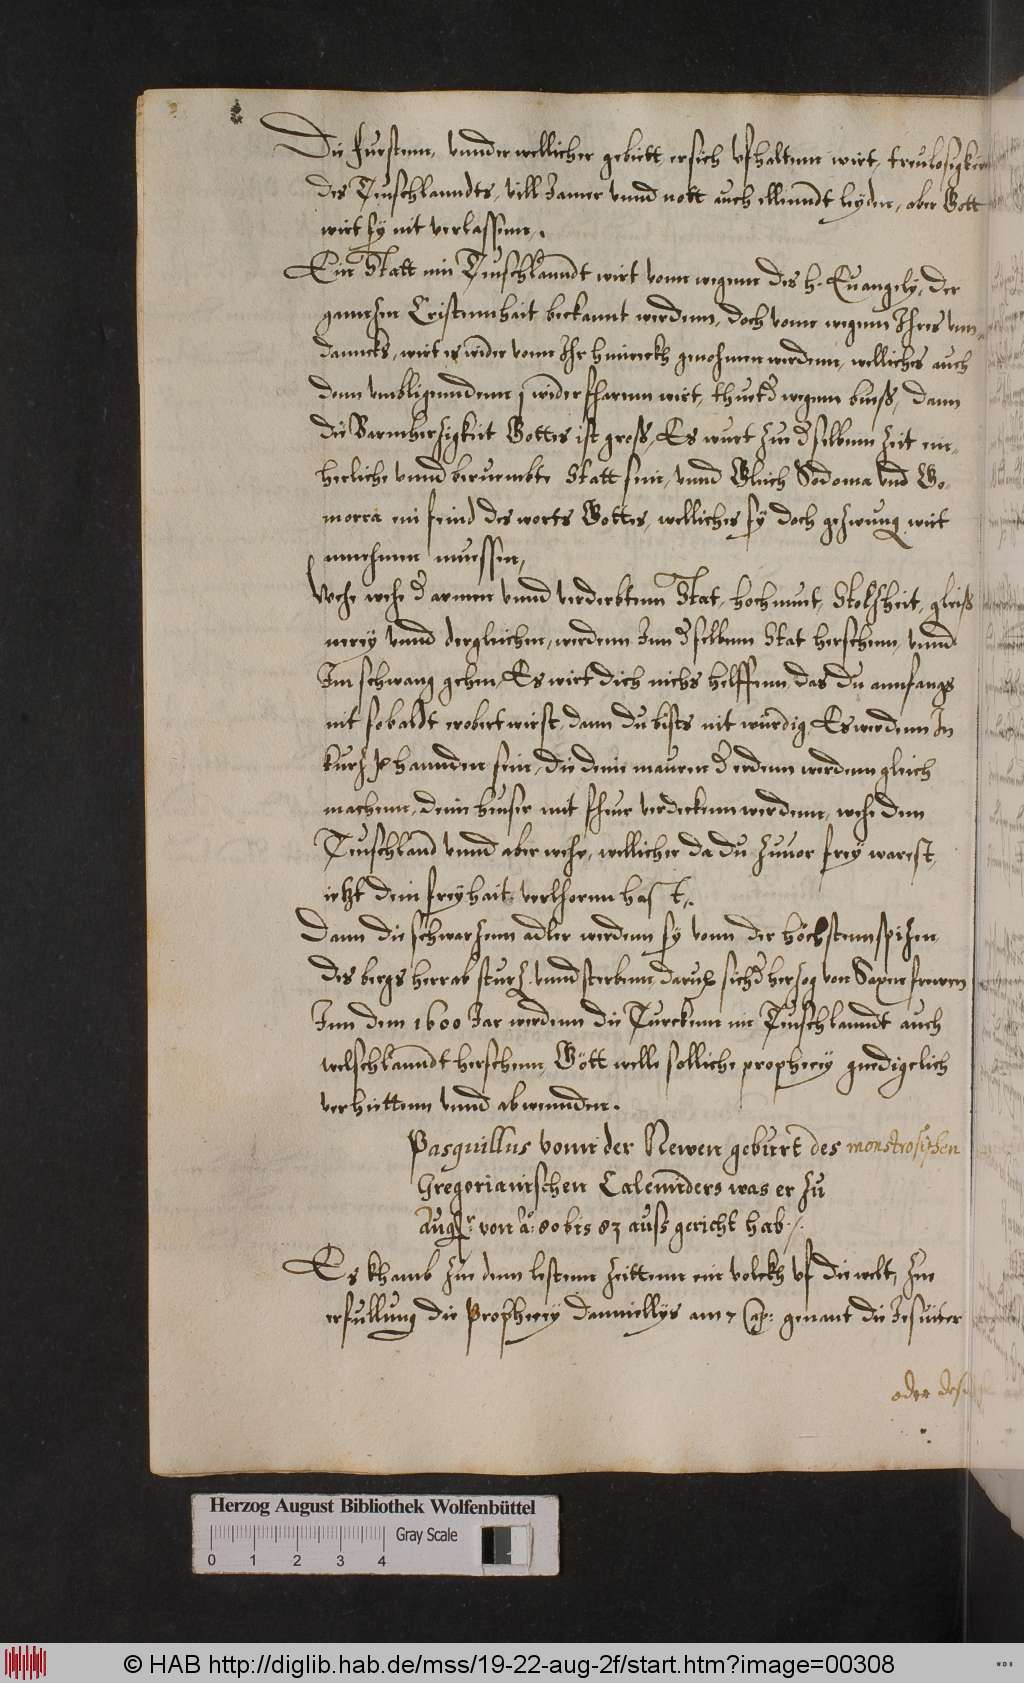 Die fursten, unnder wellicher gebiett er sich ufhaltenn wirt, treulosigkeit
des Teuschlanndts, vill Jamer unnd nott auch ellenndt leyden, aber Gott
wirt sy nit verlassenn.
Ein Statt inn Teuschlanndt wirt vonn wegenn des h. Euangely, der
ganntzen Cristennhait beckannt werdenn, doch vonn wegenn Jhres unn-
dannckhs, wirt es wider vonn Jhr hinweckh genohmen werdenn, welliches auch
denn umbligenndenn widerfharenn wirt, thuet d wegenn buess, dann
die Barmhertzigkeit Gottes ist gross, Es wurt zue d selbenn zeit ein
herliche unnd beruembte Statt sein, unnd Gleich Sodoma und Go-
morra ein feind des worts Gottes, welliches sy doch gezwung wirt
annehmen muessen,
Wehe wehe d armen unnd verderbtenn Stat, hochmuet, Stoltzheit, gleiss-
nerey unnd dergleichen, werdenn Inn d selbenn Stat herschenn, unnd
Im schwang gehen, Es wirt dich nichs helffenn, das du annfangs
nit sobaldt erobert wirst, dann du bists nit würdig, Es werdenn In
kurtz vorhannden sein, die deine mauren d erdenn werdenn gleich
machenn, deine heuser mit fheur verdeckenn werdenn, wehe dem
Teuschland unnd aber wehe, wellicher da du zuuor frey warest,
ietzt dein freyhait verlhorenn hast,
Dann die schwartzenn adler werdenn sy vonn der höchstenn spitzen
des bergs herrab sturtz unnd sterbenn, darup sich d hertzog von Saxen frewen
Inn dem 1600 Jar werdenn die Turckenn in Teuschlanndt auch
welschlanndt herschenn, Gott welle solliche prophecey gnedigelich
verhuettenn unnd abwennden.
Pasquillus vonn der Newen geburt des monstrosischen
Gregorianischen Calennders was er zu
Augs. von aº. 80 bis 83 auss gericht hab
Es khamb zue denn lestenn zeittenn ein volckh uf die welt, zue
erfullung die Prophecey Danniellys am 7 Cap: genant die Jesuiter
oder
Herzog August Bibliothek Wolfenbüttel
Gray Scale
0 1 2 3 4
© HAB http://diglib.hab.de/mss/19-22-aug-2f/start.htm?image=00308